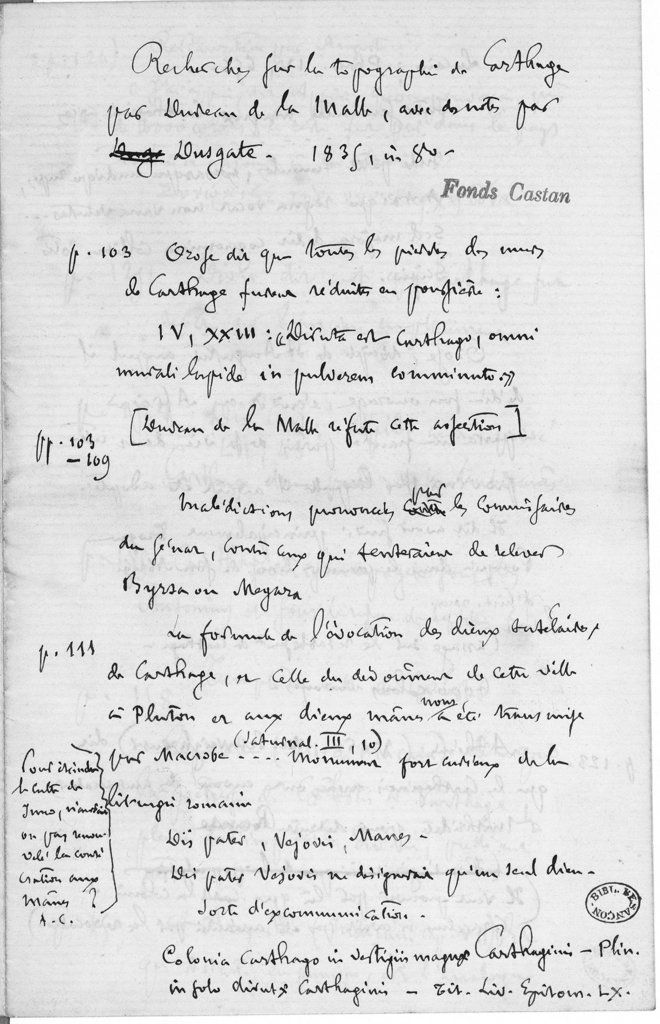 Recherches sur la topographie de Carthage
par Dureau de la Malle, avec des notes par
Dusgate. 1835, in 8o.
Fonds Castan
p. 103 Orose dit que toutes les pierres des murs
de Carthage furent réduites en poussière :
IV, XXIII : "Diruta est Carthago, omni
murali lapide in pulverem comminuto."
[Dureau de la Malle réfute cette assertion]
pp. 103
– 109
Malédictions prononcées par les commissaires
du Sénat, contre ceux qui tenteraient de relever
Byrsa ou Megara
p. 111 La formule de l'évocation des dieux tutélaires
de Carthage, et celle du dévouement de cette ville
à Pluton et aux dieux mânes nous a été transmise
par Macrobe (Saturnal. III, 10) .... Monument fort curieux de la
liturgie romaine
Dis pater, Vejovis, Manes.
Dis pater Vejovis ne désignerait qu'un seul dieu.
Sorte d'excommunication.
le culte de
Junon, n'aurait
on pas renou
velé la consé
cration aux
Mânes ?
A. C.
BIBL. BESANÇON
Colonia Carthago in vestigiis magnæ Carthaginis – Plin.
in solo dirutæ Carthaginis – Tit. Liv. Epitom. LX.